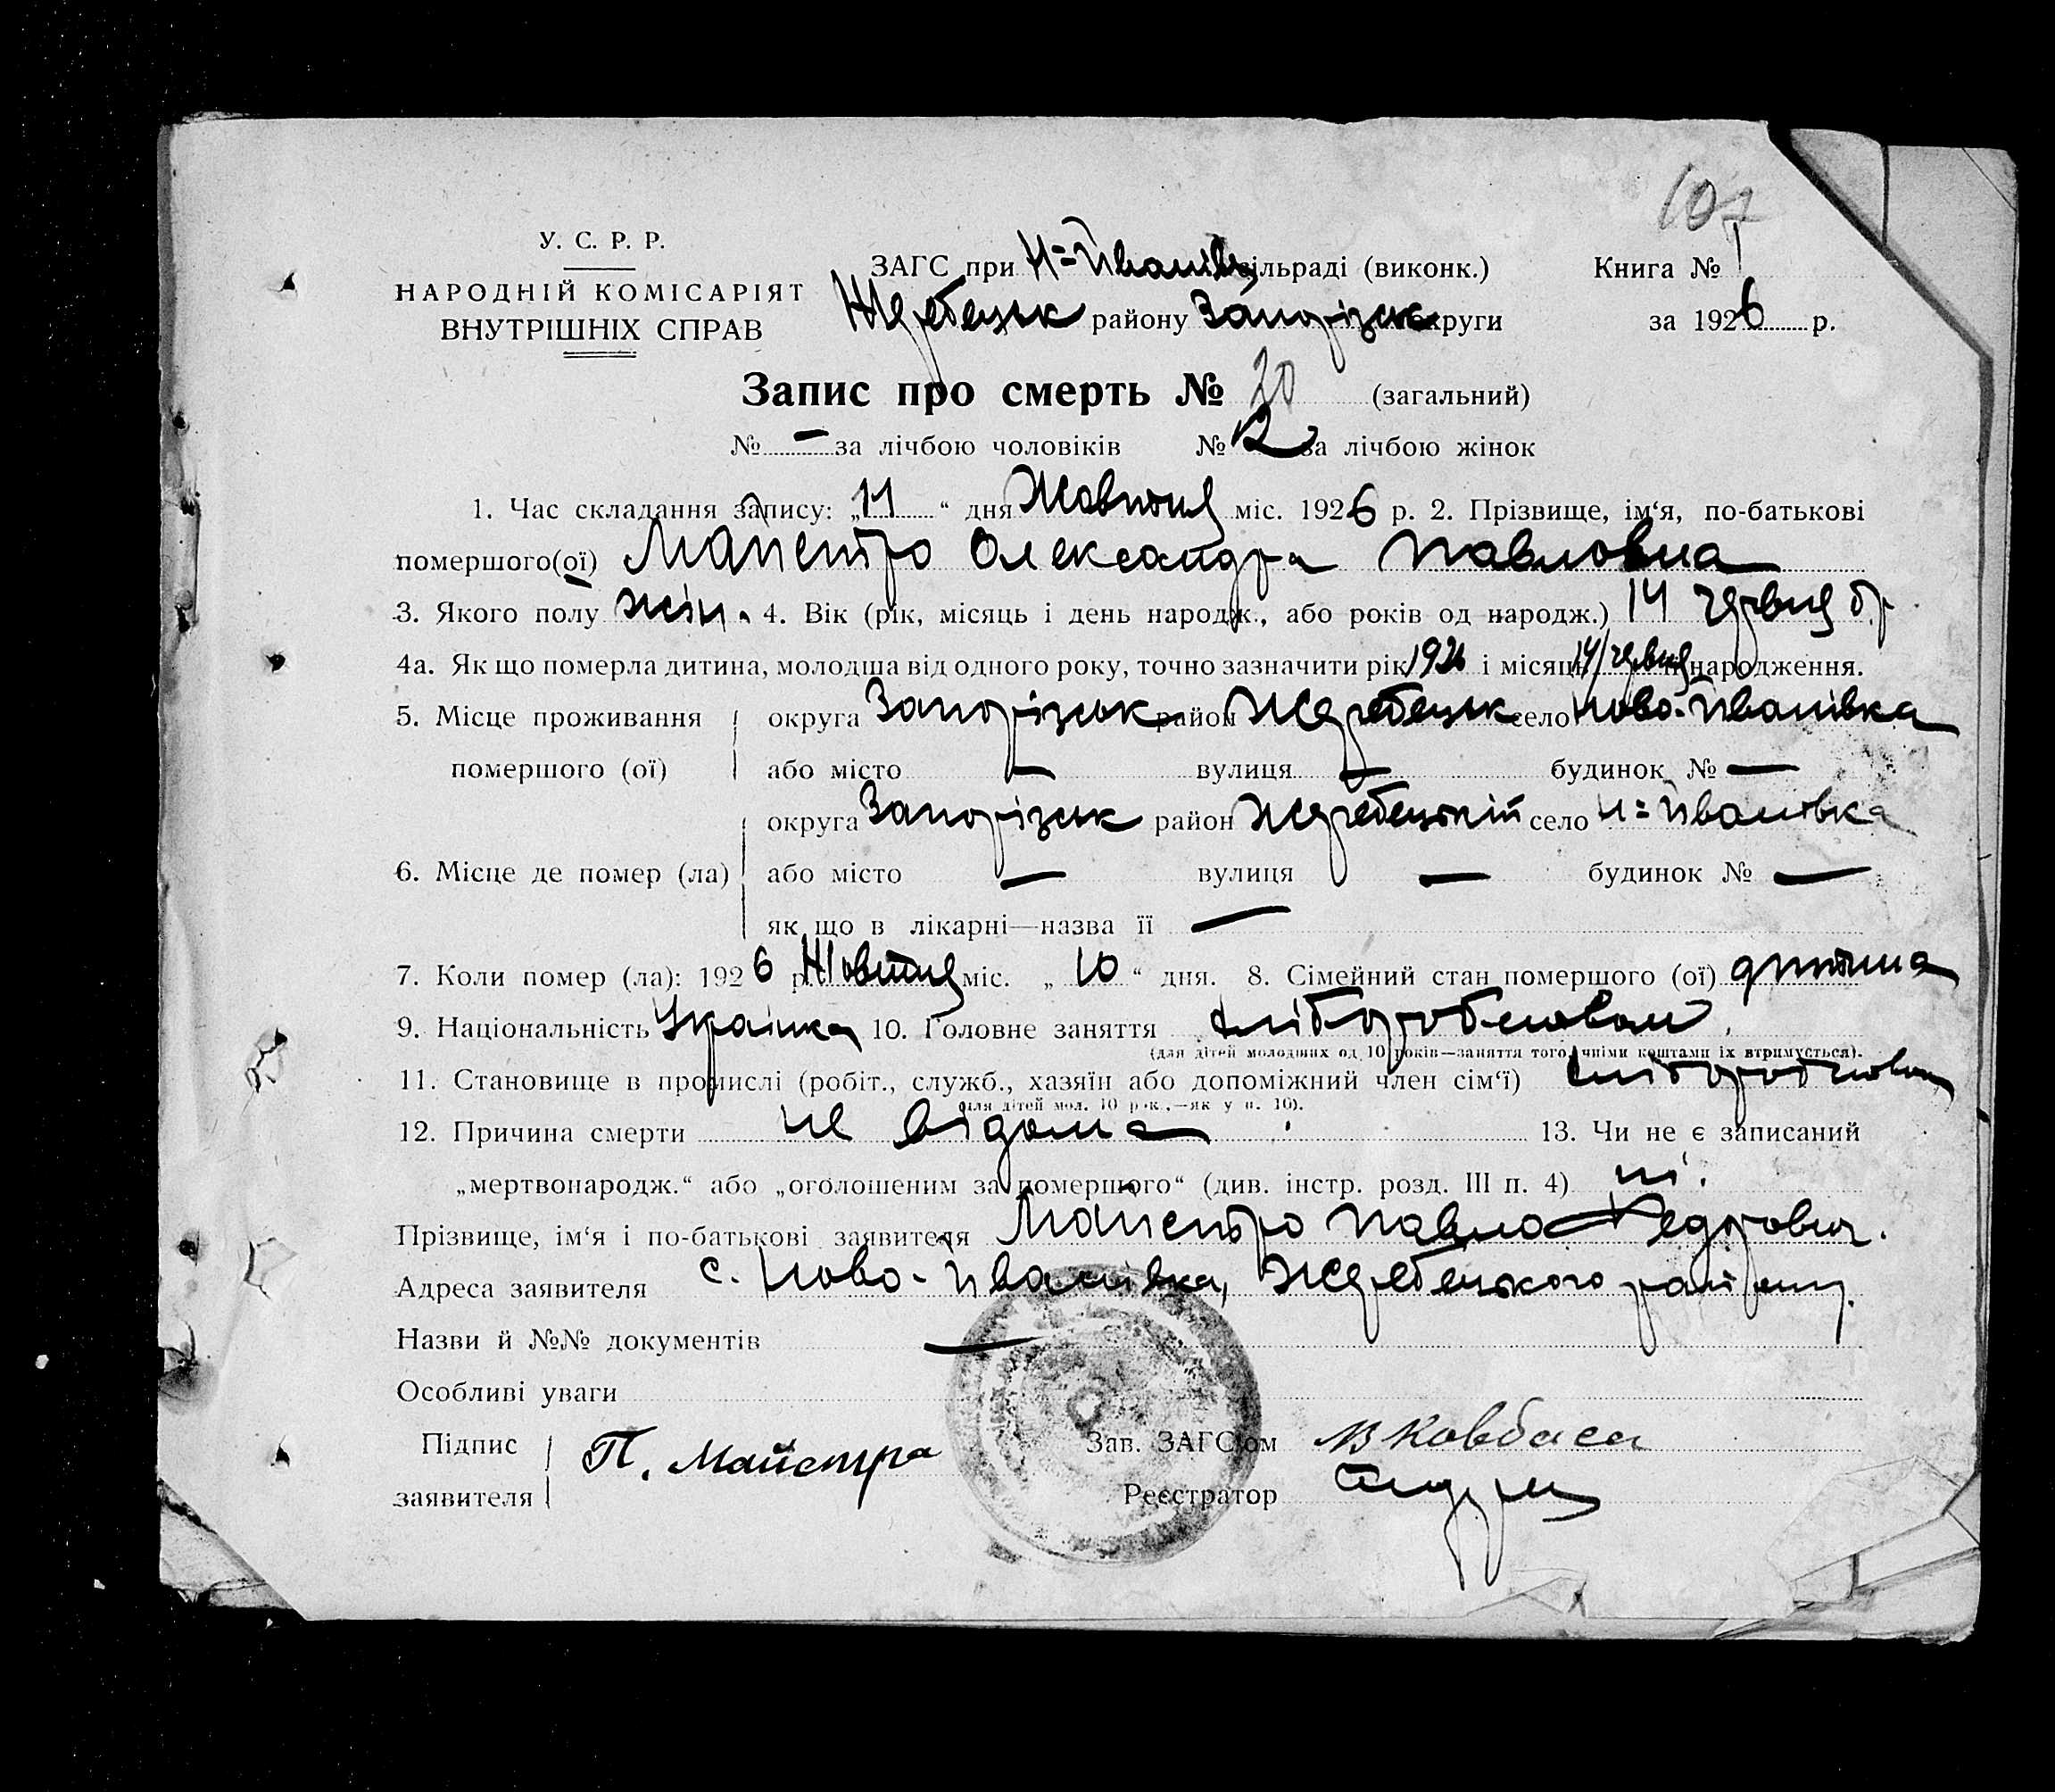 107
У. С. Р. Р.
НАРОДНІЙ КОМІСАРІЯТ
ВНУТРІШНІХ СПРАВ
ЗАГС при Н=Йванівц сільраді (виконк.)
Жеребецьк району Запорізьк округи
Книга № 1
за 1926 р.
Запис про смерть № 20 (загальний)
№ — за лічбою чоловіків № 12 за лічбою жінок
1. Час складання запису: „11“ дня Жовтня міс. 1926 р. 2. Прізвище, ім‘я, по-батькові
помершого(ої) Майстро Олександра Павловна
3. Якого полу жін. 4. Вік (рік, місяць і день народж., або років од народж.) 14 червня б.р.
4а. Як що померла дитина, молодша від одного року, точно зазначити рік 1926 і місяць 14/червня її народження.
5. Місце проживання помершого (ої) округа Запорізьк район Жеребецьк село Ново-Йванівка
або місто — вулиця — будинок № —
6. Місце де помер (ла) округа Запорізьк район Жеребецький село Н=Йванівка
або місто — вулиця — будинок № —
як що в лікарні—назва її —
7. Коли помер (ла): 1926 р. Жовтня міс. „10“ дня. 8. Сімейний стан помершого (ої) дитина
9. Національність Українка 10. Головне заняття хліборобством.
(для дітей молодших од 10 років—заняття того, чиїми коштами їх втримується).
11. Становище в промислі (робіт., служб., хазяїн або допоміжний член сім‘ї) хліборобством
(для дітей мол. 10 рок.,—як у п. 10).
12. Причина смерти не відома. 13. Чи не є записаний
„мертвонародж.“ або „оголошеним за помершого“ (див. інстр. розд. III п. 4) ні.
Прізвище, ім‘я і по-батькові заявителя Майстро Павло Федорович.
Адреса заявителя с. Ново-Йванівка, Жеребецького району.
Назви й №№ документів —
Особливі уваги
Підпис заявителя П. Майстра
Зав. ЗАГС‘ом В Ковбаса
Реєстратор